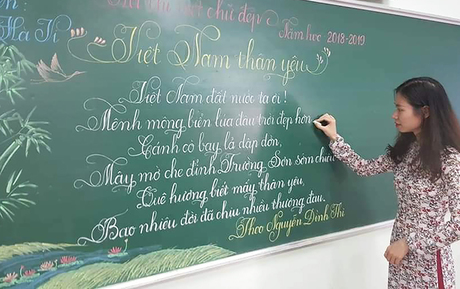 viết chữ đẹp
Năm học 2018-2019
Việt Nam thân yêu
Việt Nam đất nước ta ơi!
Mênh mông biển lúa đâu trời đẹp hơn
Cánh cò bay lả dập dờn,
Mây mờ che đỉnh Trường Sơn sớm chiều
Quê hương biết mấy thân yêu,
Bao nhiêu đời đã chịu nhiều thương đau.
Theo Nguyễn Đình Thi